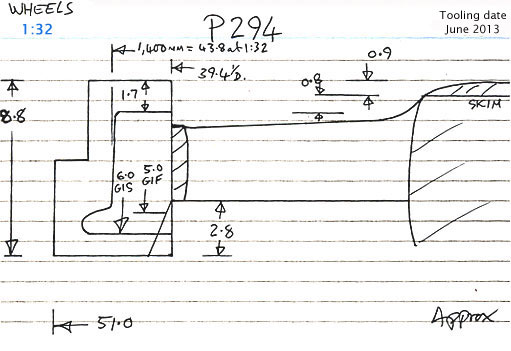 WHEELS
1:32
P294
Tooling date
June 2013
1,400MM = 43.8 at 1:32
39.4 I/D.
0.9
0.8
1.7
SKIM
8.8
6.0
GIS
5.0
GIF
2.8
51.0
Approx